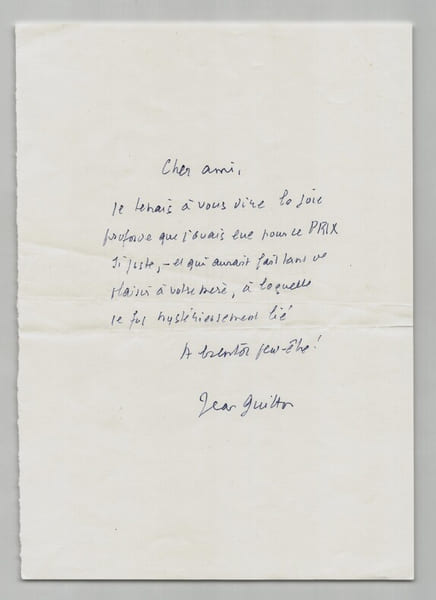 Cher ami,
je tenais à vous dire la joie
profonde que j'avais eue pour ce PRIX
si juste, – et qui aurait fait tant de
plaisir à votre mère, à laquelle
je fus mystérieusement lié
A bientôt peut-être !
Jean Guitton